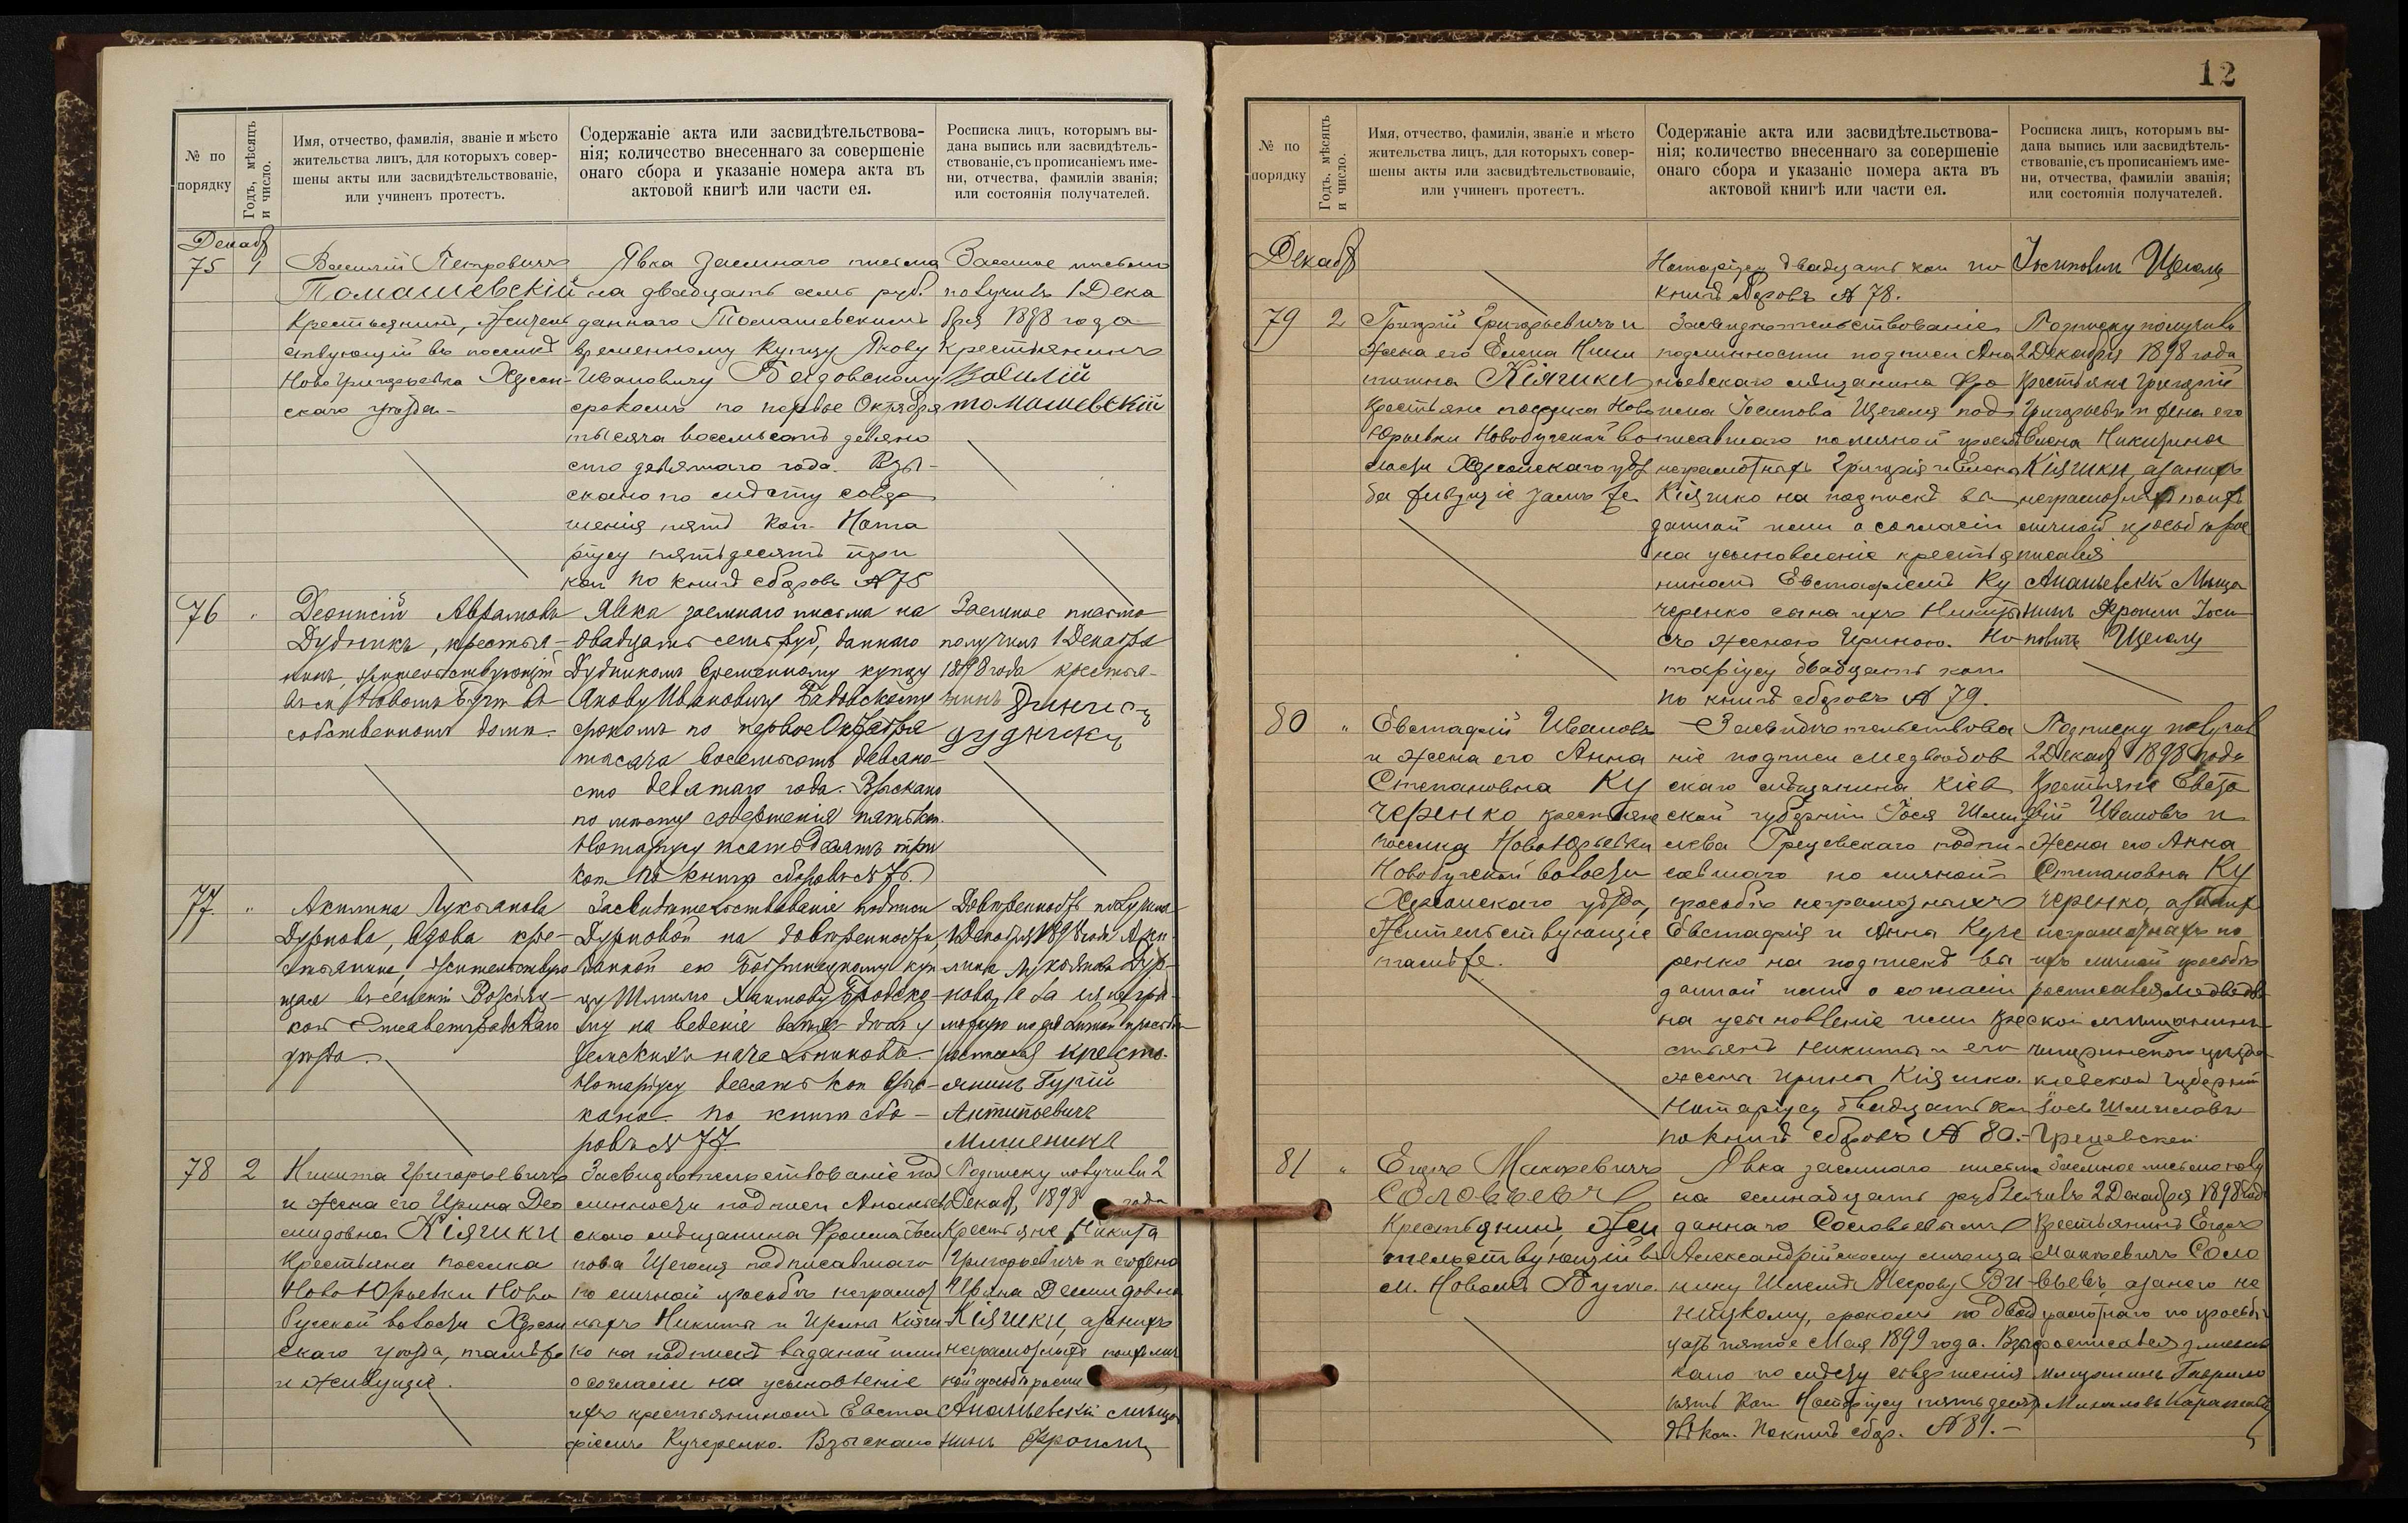 12
№ по
порядку
Годъ, мѣсяцъ
и число.
Имя, отчество, фамилія, званіе и мѣсто
жительства лицъ, для которыхъ совер-
шены акты или засвидѣтельствованіе,
или учиненъ протестъ.
Содержаніе акта или засвидѣтельствова-
нія; количество внесеннаго за совершеніе
онаго сбора и указаніе номера акта въ
актовой книгѣ или части ея.
Росписка лицъ, которымъ вы-
дана выпись или засвидѣтель-
ствованіе, съ прописаніемъ име-
ни, отчества, фамиліи званія;
или состоянія получателей.
Декабр
75 1
Василій Петровичъ
Томашевскій
Крестьянинъ, Житель
ствующій въ поселкѣ
Ново Григорьевка Херсон-
скаго уѣзда-
Явка заемнаго письма
на двадцать семь руб.
даннаго Томашевскимъ
временному Купцу Якову
Ивановичу
срокомъ по первое Октября
тысяча восемьсотъ девяно
сто девятаго года. Взы-
скано по мѣсту совер
шенія пять коп. Нота
ріусу пятьдесятъ три
коп по книгѣ сборовъ № 75
Заемное письмо
получилъ 1 Дека
бря 1898 года
Крестьянинъ
Василій
томашевскій
76 "
Деонисій Аврамовъ
Дудникъ, крестья-
нинъ, жительствующій
въ м. Новомъ Бугѣ въ
собственномъ домѣ.
Явка заемнаго письма на
двадцать семь руб, даннаго
Дудникомъ временному купцу
Якову Ивановичу
срокомъ по первое Октября
тысяча восемьсотъ девяно-
сто девятаго года. Взыскано
по мѣсту совершенія пять коп.
Нотаріусу пятьдесятъ три
коп по книгѣ сборовъ № 76.
Заемное письмо
получилъ 1 Декабря
1898 года крестья-
нинъ
дудникъ
77. "
Акилина Лукьянова
Дурнова, вдова кре-
стьянина, жительствую
щая въ селеніи
Елисаветградскаго
уѣзда.
Засвидѣтельствованіе подписи
Дурновой на довѣренности,
данной ею Бобринецкому куп
цу Шлиму Хаимову Бродско-
му на веденіе дѣлъ у
земскихъ начальниковъ.
Нотаріусу десять коп взы-
скано по книгѣ сбо-
ровъ № 77.
Довѣренность получила
1 Декабря 1898 года Аки-
лина Лукьянова Дур-
нова, а за нея неграмотную по ея личной просьбѣ
росписался кресть-
янинъ Гурій
Антипьевичъ
78 2
Никита Григорьевичъ
и жена его Ирина Део
мидовна Кіяшки
Крестьяне поселка
Ново Юрьевки Ново
бугской волости Херсон
скаго уѣзда, тамъ же
и живущіе.
Засвидѣтельствованіе под
линности подписи Ананьев
скаго мѣщанина Фроима Іоси
пова Щеголя подписавшаго
по личной просьбѣ неграмот
ныхъ Никиты и Ирины Кіяш
ко на подпискѣ выданной ими
о согласіи на усыновленіе
ихъ крестьяниномъ Евста
фіемъ Кучеренко. Взыскано
Подписку получили 2
Декаб, 1898 года
Крестьяне Никита
Григорьевичъ и его жена
Ирина Демидовна
Кіяшки, а за нихъ
неграмотныхъ по ихъ лич
ной просьбѣ роспи
Ананьевскій мѣща
нинъ Фроимъ
№ по
порядку
Годъ, мѣсяцъ
и число.
Имя, отчество, фамилія, званіе и мѣсто
жительства лицъ, для которыхъ совер-
шены акты или засвидѣтельствованіе,
или учиненъ протестъ.
Содержаніе акта или засвидѣтельствова-
нія; количество внесеннаго за совершеніе
онаго сбора и указаніе номера акта въ
актовой книгѣ или части ея.
Росписка лицъ, которымъ вы-
дана выпись или засвидѣтель-
ствованіе, съ прописаніемъ име-
ни, отчества, фамиліи званія;
или состоянія получателей.
Декабр
Нотаріусу двадцать коп по
книгѣ сборовъ № 78.
Іосиповичъ Щеголь
79 2
Григорій Григорьевичъ и
жена его Елена Ники
тична Кіяшки
крестьяне поселка Ново
Юрьевки Новобугской во
лости Херсонскаго уѣз
да живущіе тамъ же
Засвидѣтельствованіе
подлинности подписи Ана
ньевскаго мѣщанина Фро
има Іосипова Щеголя под
писавшаго по личной просьбѣ
неграмотныхъ Григорія и Елены
Кіяшко на подпискѣ вы
данной ими о согласіи
на усыновленіе крестья
ниномъ Евстафіемъ Ку
черенко сына ихъ Никиты
съ женою Ириною. Но
таріусу двадцать коп
по книгѣ сборовъ № 79.
Подписку получили
2 Декабря 1898 года
Крестьяне Григорій
Григорьевъ и жена его
Елена Никитина
Кіяшки, а за нихъ
неграмотныхъ по ихъ
личной просьбѣ рос
писался
Ананьевскій Мѣща
нинъ Фроимъ Іоси
повичъ Щеголь
80 "
Евстафій Ивановъ
и жена его Анна
Степановна Ку
черенко крестьяне
поселка Ново Юрьевки
Новобугской волости
Херсонскаго уѣзда,
Жительствующіе
тамъ же.
Засвидѣтельствова
ніе подписи
скаго мѣщанина Кіев
ской губерніи Іося Шми
лева Грецевскаго подпи-
савшаго по личной
просьбѣ неграмотныхъ
Евстафія и Анны Куче
ренко на подпискѣ вы
данной ими о согласіи
на усыновленіе ими кре
стьянъ Никиты и его
жены Ирины Кіяшко.
Нотаріусу двадцать коп
по книгѣ сборовъ № 80.-
Подписку получил
2 Декаб 1898 года
Крестьяне Евста
фій Ивановъ и
жена его Анна
Степановна Ку
черенко, а за нихъ
неграмотныхъ по
ихъ личной просьбѣ
росписался
ской мѣщанинъ
чигиринскаго уѣзда
кіевской губерніи
Іось Шмилевъ
Грецевскій
81 "
Егоръ Макѣевичъ
Соловьевъ
Крестьянинъ, Жи
тельствующій въ
м. Новомъ Бугѣ.
Явка заемнаго письма
на семнадцать рублей
даннаго Соловьевымъ
Александрійскому мѣща
нину Шлемѣ Меерову Ви
ницкому, срокомъ по двад
цать пятое Мая 1899 года. Взыс
кано по мѣсту совершенія
пять коп. Нотаріусу пятьдесят
коп. По книгѣ сбор. № 81.-
Заемное письмо полу
чилъ 2 Декабря 1898 года
Крестьянинъ Егоръ
Макѣевичъ Соло
вьевъ, а за него не
грамотнаго по просьбѣ
росписался
мѣщанинъ Гаврило